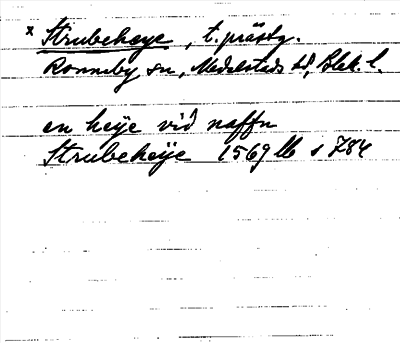 x Strubehøye, t. prästg.
Ronneby sn, Medelstads hd, Blek. l.
en heÿe vid naffn
Strubeheÿe 1569 lb s 784